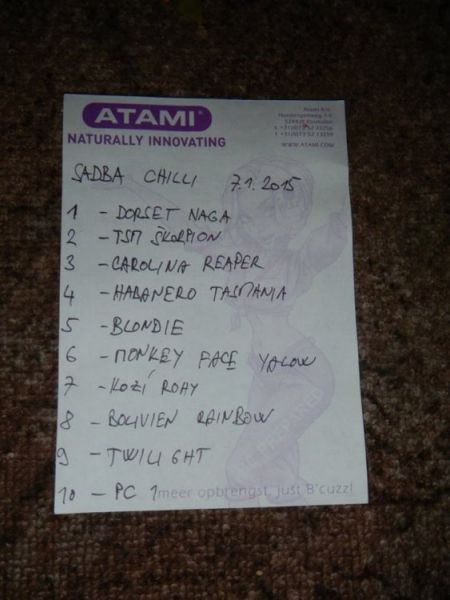 ATAMI
NATURALLY INNOVATING
Atami B.V.
WWW.ATAMI.COM
SADBA CHILLI 7.1.2015
1 - DORSET NAGA
2 - TSM ŠKORPION
3 - CAROLINA REAPER
4 - HABANERO TASMANIA
5 - BLONDIE
6 - MONKEY FACE YALOW
7 - KOZÍ ROHY
8 - BOLIVIEN RAINBOW
9 - TWILIGHT
10 - PC 1
meer opbrengst, just B'cuzz!